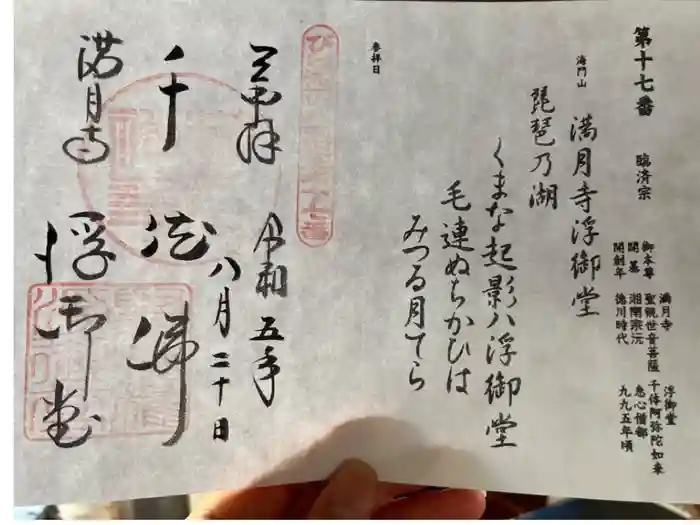 第十七番
臨済宗
満月寺 浮御堂
御本尊 聖観世音菩薩 千体阿弥陀如来
開基 湘南宗沅 恵心僧都
開創年 徳川時代 九九五年頃
海門山
満月寺浮御堂
琵琶乃湖
くまな起影八浮御堂
毛連ぬちかひは
みつる月てら
参拝日
奉拝 令和五年
八月二十日
千体佛
満月寺 浮御堂